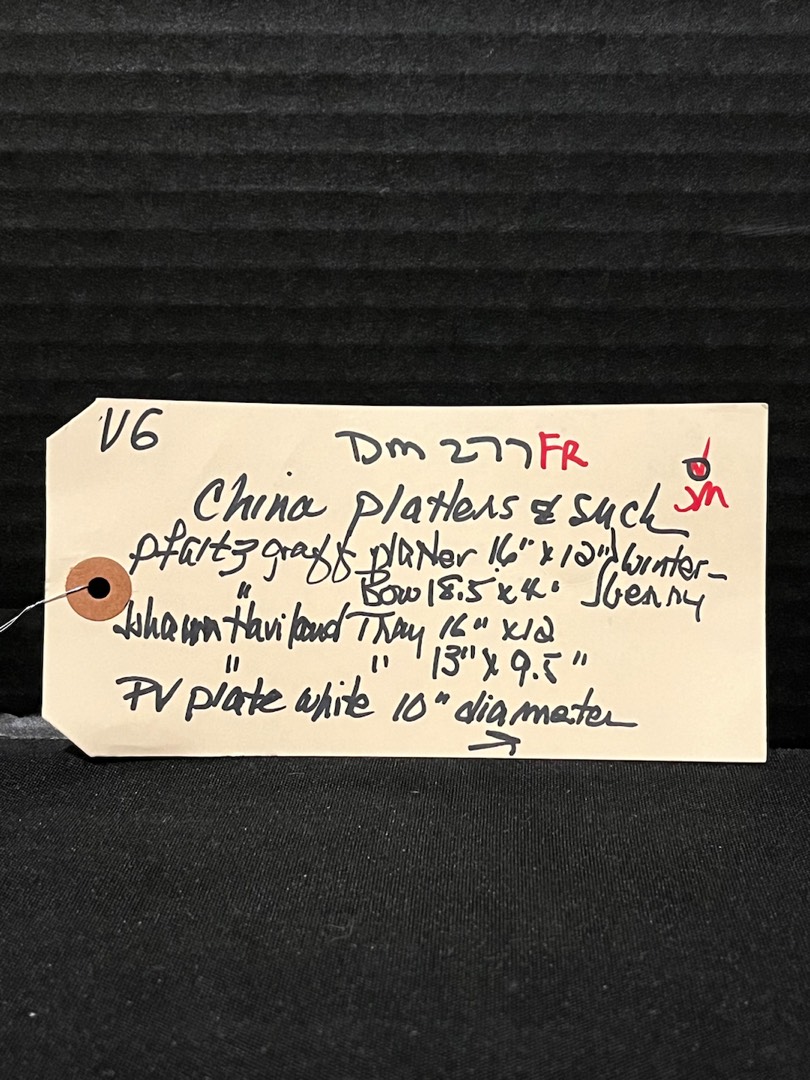 V6
Dm 277 FR
JM
China platters & such
Pfaltzgraff platter 16" x 12" } Winter-
" Bowl 8.5 x 4" } berry
Johann Haviland Tray 16" x 12
" " 13" x 9.5"
PV plate white 10" diameter
→